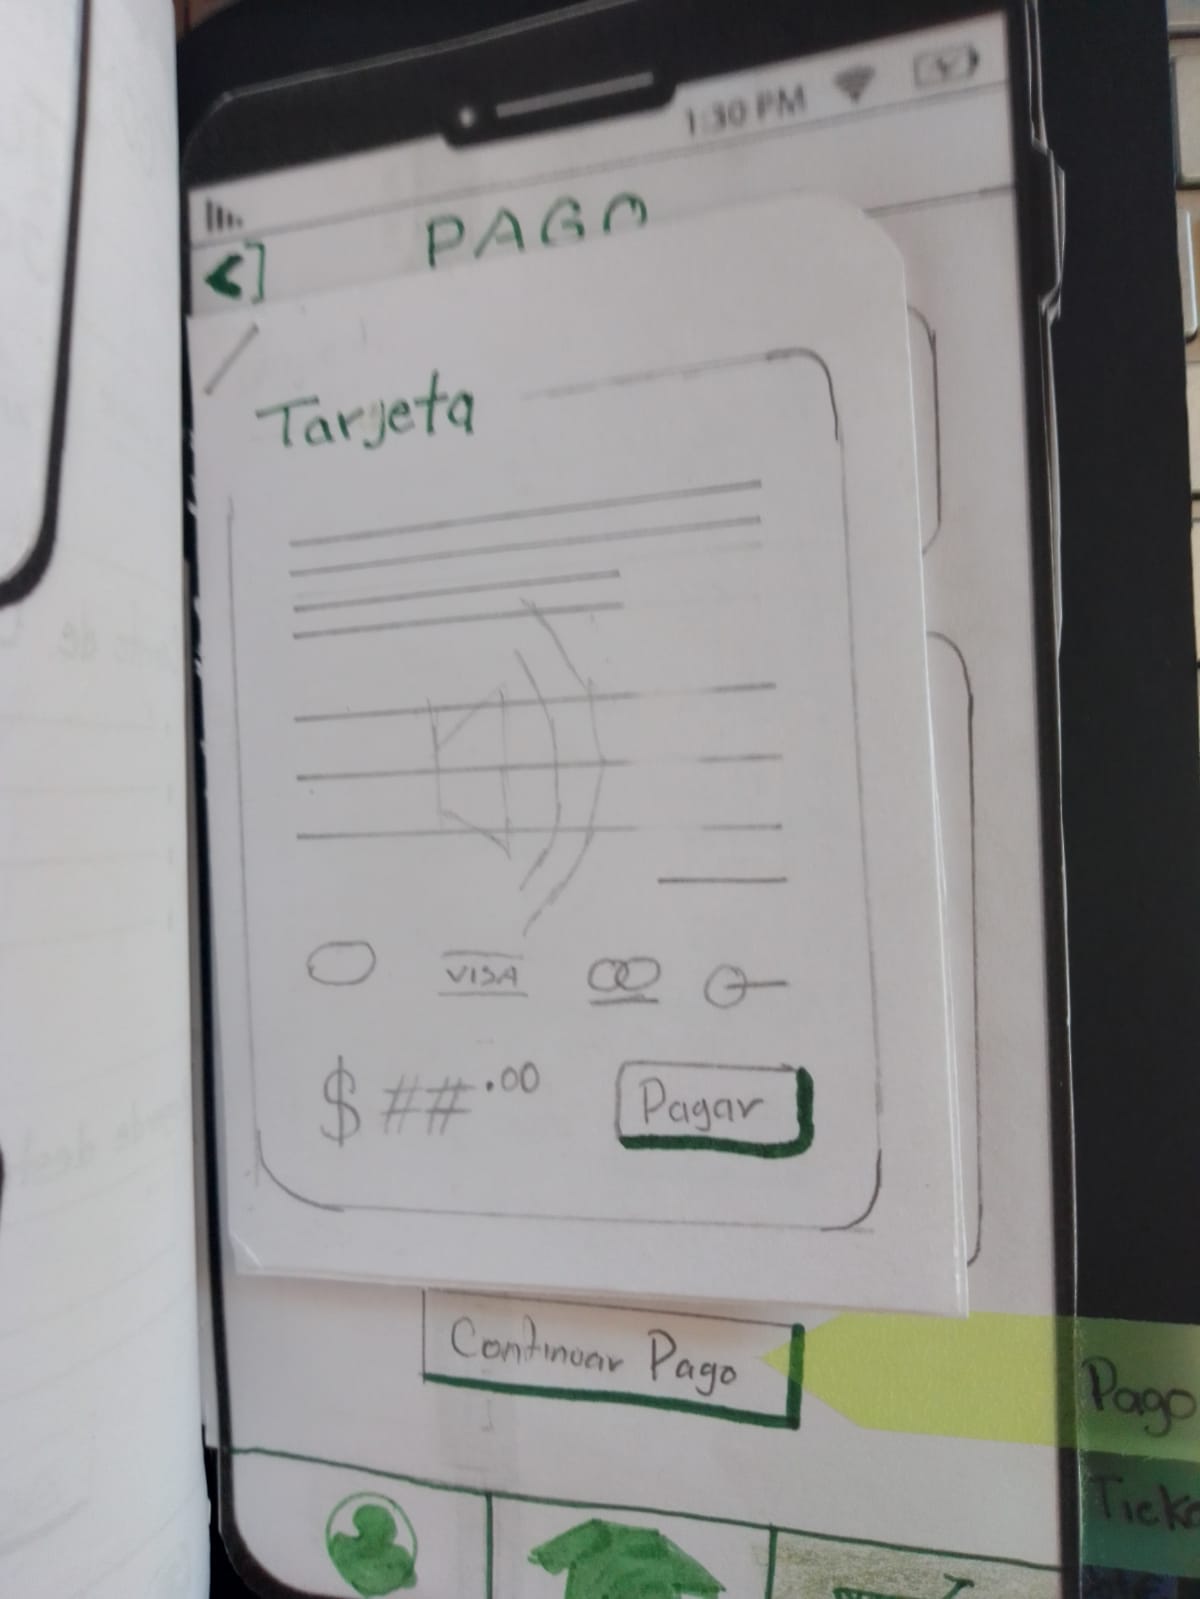 1:30 PM
PAGO
Tarjeta
VISA
$ ##.00
Pagar
Continuar Pago
Pago